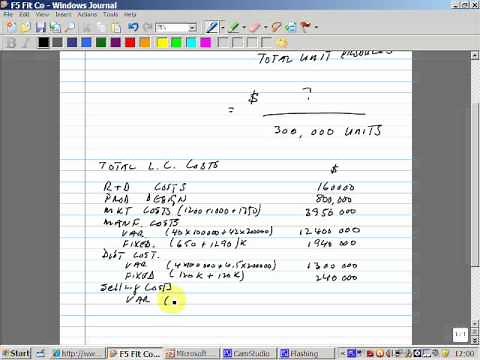 F5 Fit Co - Windows Journal
File Edit View Insert Actions Tools Help
TOTAL UNIT PRODUCED
= $ ?
300,000 UNITS
TOTAL L.C. COSTS $
R+D COSTS 160000
PROD DESIGN 800,000
MKT COSTS (1200+1000+1750) 3950 000
MANF. COSTS
VAR (40×100000 + 42×200000) 12400 000
FIXED. (650 + 1290)K 1940 000
DIST COST.
VAR (4×100000 + 4.5×200000) 1300 000
FIXED (120K + 120K) 240 000
Selling COSTS
VAR (
1 / 1
Start
http://ww...
F5 Fit Co...
Microsoft ...
CamStudio
Flashing
12:00